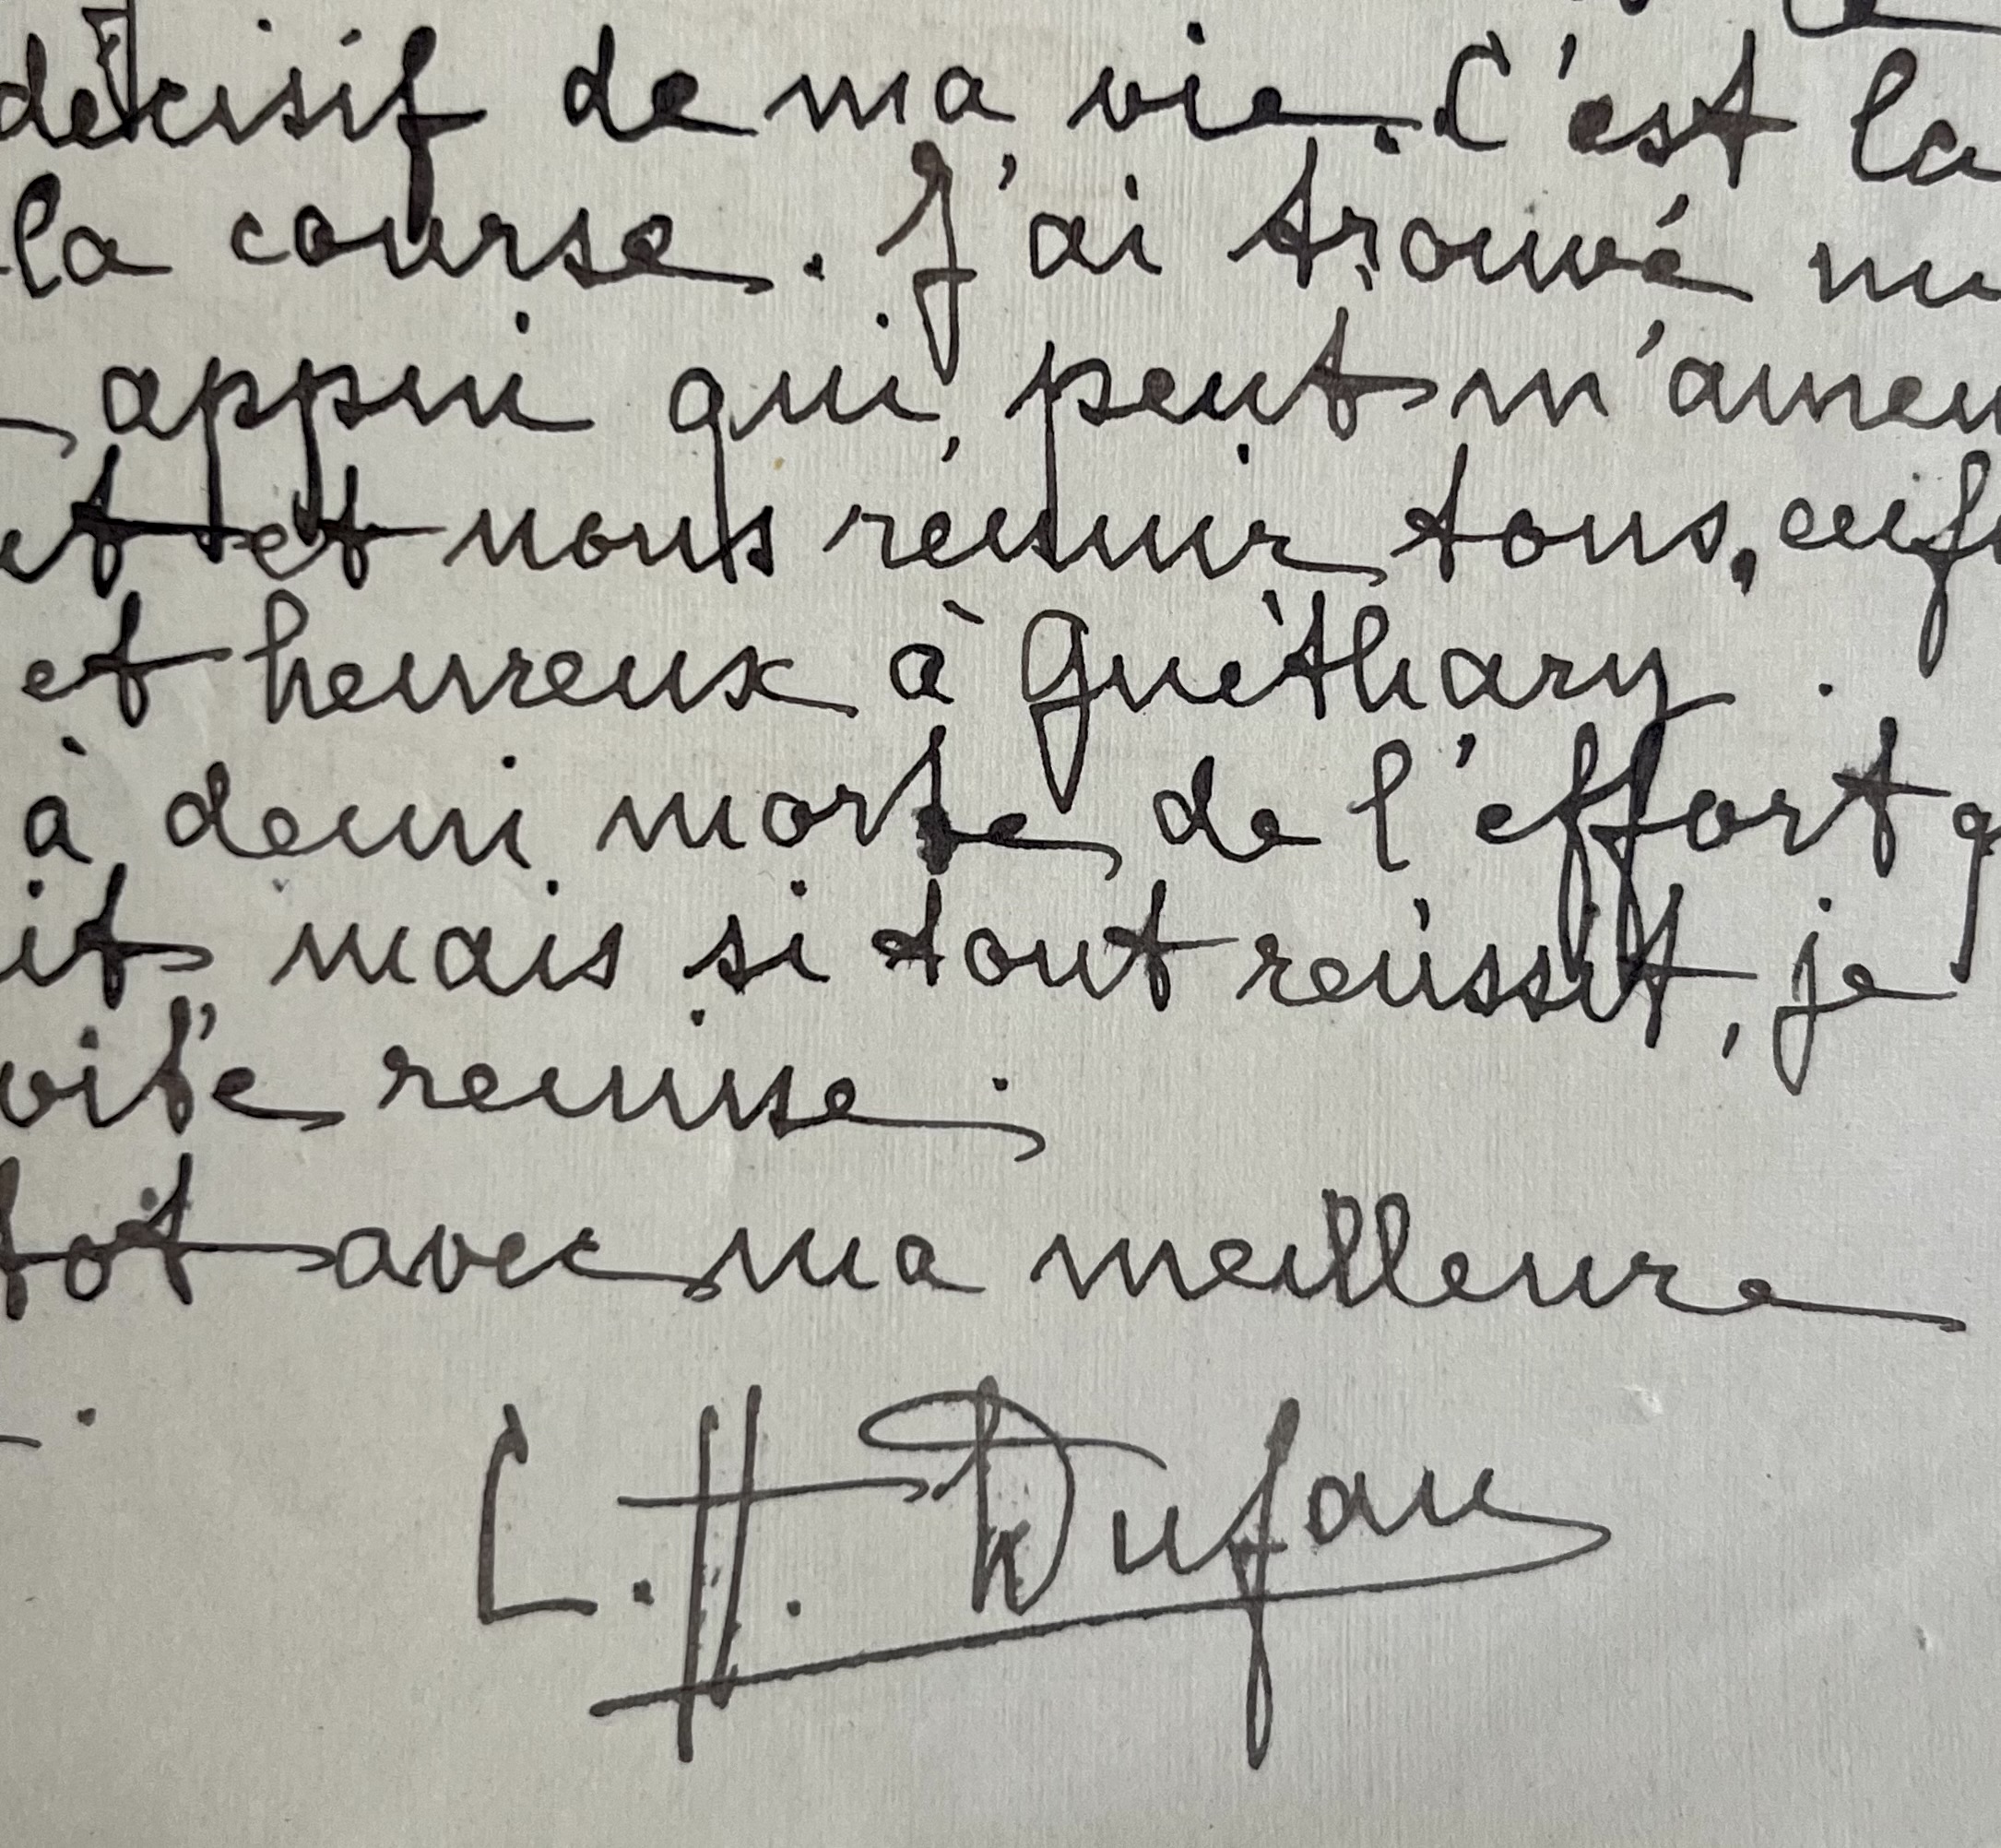 décisif de ma vie. C'est la
la course. J'ai trouvé
appui qui peut m'amen
et nous réunir tous, enf
et heureux à Guéthary.
à demi morte de l'effort q
it mais si tout réussit, je
vite remise.
tôt avec ma meilleure
C.H. Dufau